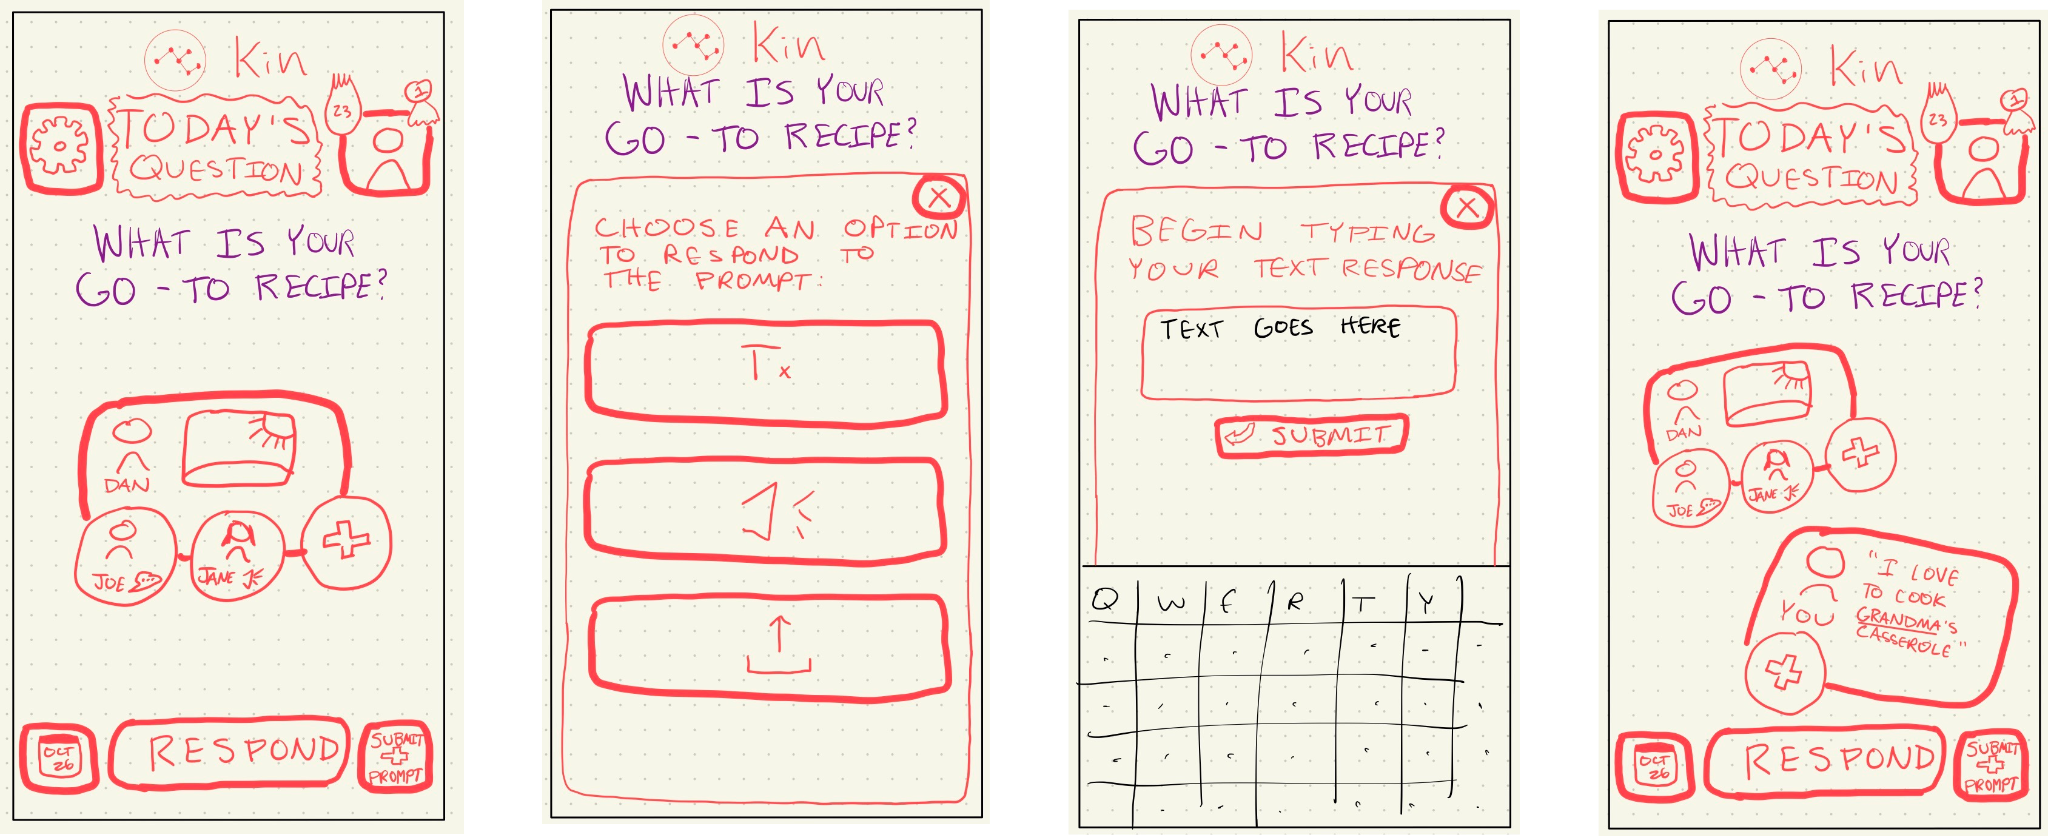 Kin
23
1
TODAY'S
QUESTION
WHAT IS YOUR
GO - TO RECIPE?
DAN
JOE
JANE
OCT
26
RESPOND
SUBMIT
PROMPT
Kin
WHAT IS YOUR
GO - TO RECIPE?
X
CHOOSE AN OPTION
TO RESPOND TO
THE PROMPT:
Tx
Kin
WHAT IS YOUR
GO - TO RECIPE?
X
BEGIN TYPING
YOUR TEXT RESPONSE
TEXT GOES HERE
SUBMIT
Q W E R T Y
Kin
23
1
TODAY'S
QUESTION
WHAT IS YOUR
GO - TO RECIPE?
DAN
JOE
JANE
YOU
"I LOVE
TO COOK
GRANDMA'S
CASSEROLE"
OCT
26
RESPOND
SUBMIT
PROMPT